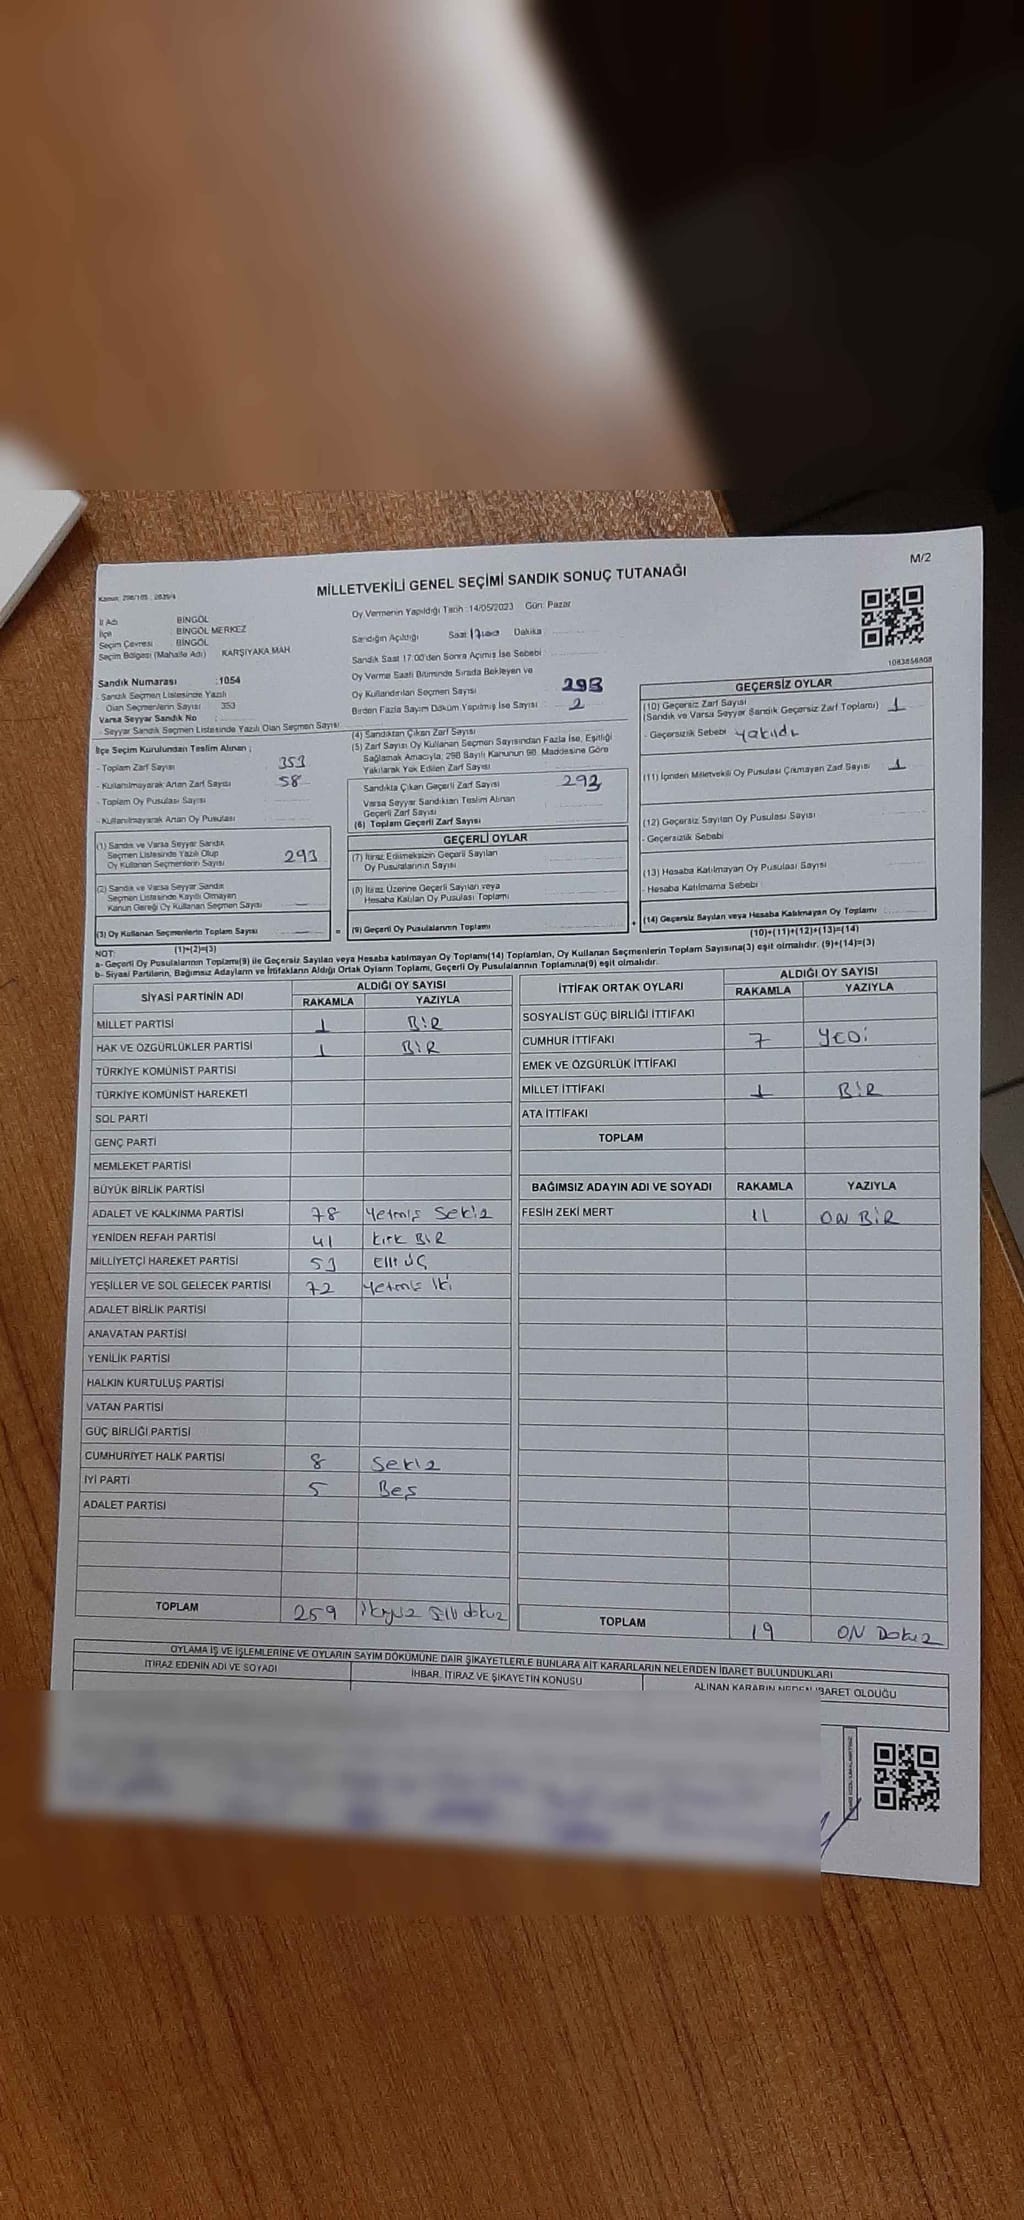 M/2
MİLLETVEKİLİ GENEL SEÇİMİ SANDIK SONUÇ TUTANAĞI
İl Adı BİNGÖL
İlçe BİNGÖL MERKEZ
Seçim Çevresi BİNGÖL
Seçim Bölgesi (Mahalle Adı) KARŞIYAKA MAH
Sandık Numarası :1054
- Sandık Seçmen Listesinde Yazılı
Olan Seçmenlerin Sayısı 353
Varsa Seyyar Sandık No
- Seyyar Sandık Seçmen Listesinde Yazılı Olan Seçmen Sayısı
Oy Vermenin Yapıldığı Tarih :14/05/2023 Gün: Pazar
Sandığın Açıldığı Saat 17:00 Dakika :
Sandık Saat 17:00'den Sonra Açılmış İse Sebebi :
Oy Verme Saati Bitiminde Sırada Bekleyen ve
Oy Kullandırılan Seçmen Sayısı 293
Birden Fazla Sayım Döküm Yapılmış İse Sayısı 2
1083856808
İlçe Seçim Kurulundan Teslim Alınan ;
- Toplam Zarf Sayısı 353
- Kullanılmayarak Artan Zarf Sayısı 58
- Toplam Oy Pusulası Sayısı
- Kullanılmayarak Artan Oy Pusulası
(1) Sandık ve Varsa Seyyar Sandık
Seçmen Listesinde Yazılı Olup
Oy Kullanan Seçmenlerin Sayısı 293
(2) Sandık ve Varsa Seyyar Sandık
Seçmen Listesinde Kayıtlı Olmayan
Kanun Gereği Oy Kullanan Seçmen Sayısı
(3) Oy Kullanan Seçmenlerin Toplam Sayısı
(1)+(2)=(3)
=
(4) Sandıktan Çıkan Zarf Sayısı
(5) Zarf Sayısı Oy Kullanan Seçmen Sayısından Fazla İse, Eşitliği
Sağlamak Amacıyla, 298 Sayılı Kanunun 98. Maddesine Göre
Yakılarak Yok Edilen Zarf Sayısı
Sandıkta Çıkan Geçerli Zarf Sayısı 292
Varsa Seyyar Sandıktan Teslim Alınan
Geçerli Zarf Sayısı
(6) Toplam Geçerli Zarf Sayısı
GEÇERLİ OYLAR
(7) İtiraz Edilmeksizin Geçerli Sayılan
Oy Pusulalarının Sayısı
(8) İtiraz Üzerine Geçerli Sayılan veya
Hesaba Katılan Oy Pusulası Toplamı
(9) Geçerli Oy Pusulalarının Toplamı
+
GEÇERSİZ OYLAR
(10) Geçersiz Zarf Sayısı
(Sandık ve Varsa Seyyar Sandık Geçersiz Zarf Toplamı) 1
- Geçersizlik Sebebi yakıldı
(11) İçinden Milletvekili Oy Pusulası Çıkmayan Zarf Sayısı 1
(12) Geçersiz Sayılan Oy Pusulası Sayısı
- Geçersizlik Sebebi
(13) Hesaba Katılmayan Oy Pusulası Sayısı
- Hesaba Katılmama Sebebi
(14) Geçersiz Sayılan veya Hesaba Katılmayan Oy Toplamı
(10)+(11)+(12)+(13)=(14)
NOT:
a- Geçerli Oy Pusulalarının Toplamı(9) ile Geçersiz Sayılan veya Hesaba katılmayan Oy Toplamı(14) Toplamları, Oy Kullanan Seçmenlerin Toplam Sayısına(3) eşit olmalıdır. (9)+(14)=(3)
b- Siyasi Partilerin, Bağımsız Adayların ve İttifakların Aldığı Ortak Oyların Toplamı, Geçerli Oy Pusulalarının Toplamına(9) eşit olmalıdır.
SİYASİ PARTİNİN ADI ALDIĞI OY SAYISI
RAKAMLA YAZIYLA
MİLLET PARTİSİ 1 BİR
HAK VE ÖZGÜRLÜKLER PARTİSİ 1 BİR
TÜRKİYE KOMÜNİST PARTİSİ
TÜRKİYE KOMÜNİST HAREKETİ
SOL PARTİ
GENÇ PARTİ
MEMLEKET PARTİSİ
BÜYÜK BİRLİK PARTİSİ
ADALET VE KALKINMA PARTİSİ 78 Yetmiş Sekiz
YENİDEN REFAH PARTİSİ 41 kırk BİR
MİLLİYETÇİ HAREKET PARTİSİ 53 Elli ÜÇ
YEŞİLLER VE SOL GELECEK PARTİSİ 72 Yetmiş İki
ADALET BİRLİK PARTİSİ
ANAVATAN PARTİSİ
YENİLİK PARTİSİ
HALKIN KURTULUŞ PARTİSİ
VATAN PARTİSİ
GÜÇ BİRLİĞİ PARTİSİ
CUMHURİYET HALK PARTİSİ 8 Sekiz
İYİ PARTİ 5 Beş
ADALET PARTİSİ
TOPLAM 259 İkiyüz Elli dokuz
İTTİFAK ORTAK OYLARI ALDIĞI OY SAYISI
RAKAMLA YAZIYLA
SOSYALİST GÜÇ BİRLİĞİ İTTİFAKI
CUMHUR İTTİFAKI 7 YEDİ
EMEK VE ÖZGÜRLÜK İTTİFAKI
MİLLET İTTİFAKI 1 BİR
ATA İTTİFAKI
TOPLAM
BAĞIMSIZ ADAYIN ADI VE SOYADI RAKAMLA YAZIYLA
FESİH ZEKİ MERT 11 ON BİR
TOPLAM 19 ON Dokuz
OYLAMA İŞ VE İŞLEMLERİNE VE OYLARIN SAYIM DÖKÜMÜNE DAİR ŞİKAYETLERLE BUNLARA AİT KARARLARIN NELERDEN İBARET BULUNDUKLARI
İTİRAZ EDENİN ADI VE SOYADI İHBAR, İTİRAZ VE ŞİKAYETİN KONUSU ALINAN KARARIN NEDEN İBARET OLDUĞU